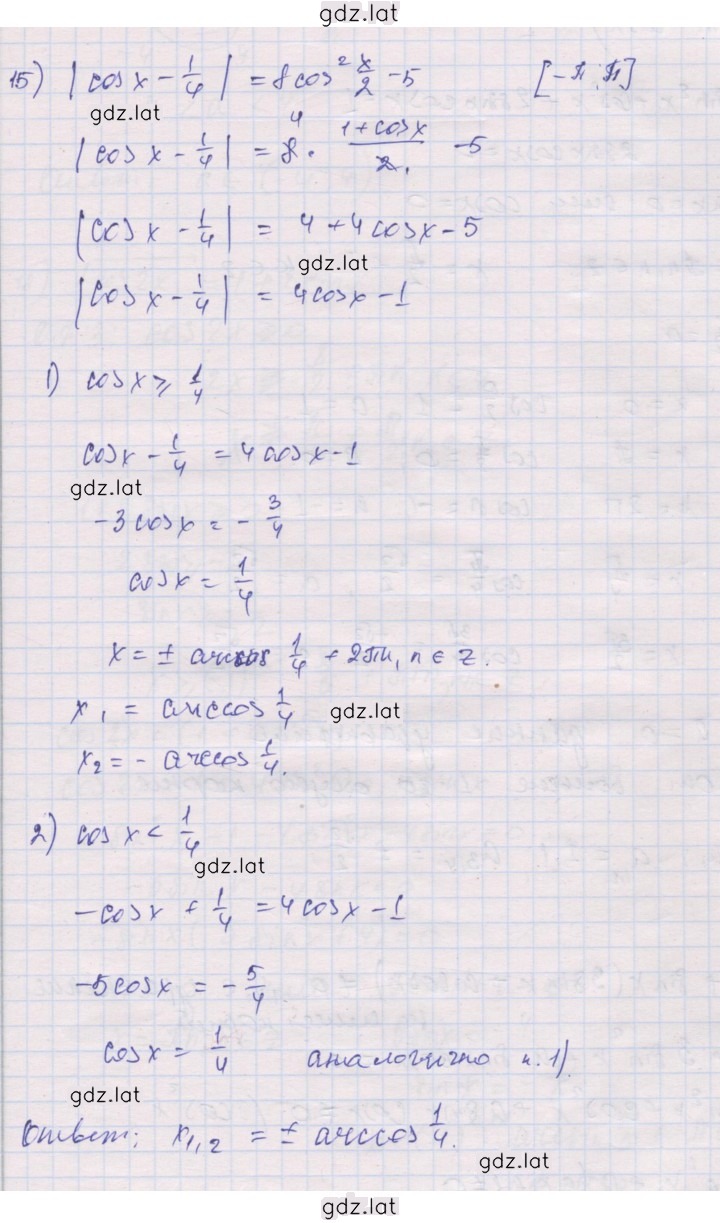 gdz.lat
15) |cos x - 1/4| = 8cos² x/2 - 5 [-π; π]
gdz.lat
|cos x - 1/4| = 8⁴ · (1+cos x)/2₁ - 5
|cos x - 1/4| = 4 + 4cos x - 5
gdz.lat
|cos x - 1/4| = 4cos x - 1
1) cos x ⩾ 1/4
cos x - 1/4 = 4cos x - 1
gdz.lat
-3cos x = - 3/4
cos x = 1/4
x = ± arccos 1/4 + 2πn, n ∈ Z.
x₁ = arccos 1/4 gdz.lat
x₂ = - arccos 1/4.
2) cos x < 1/4
gdz.lat
-cos x + 1/4 = 4cos x - 1
-5cos x = - 5/4
cos x = 1/4 аналогично п. 1)
gdz.lat
Ответ: x₁,₂ = ± arccos 1/4.
gdz.lat
gdz.lat